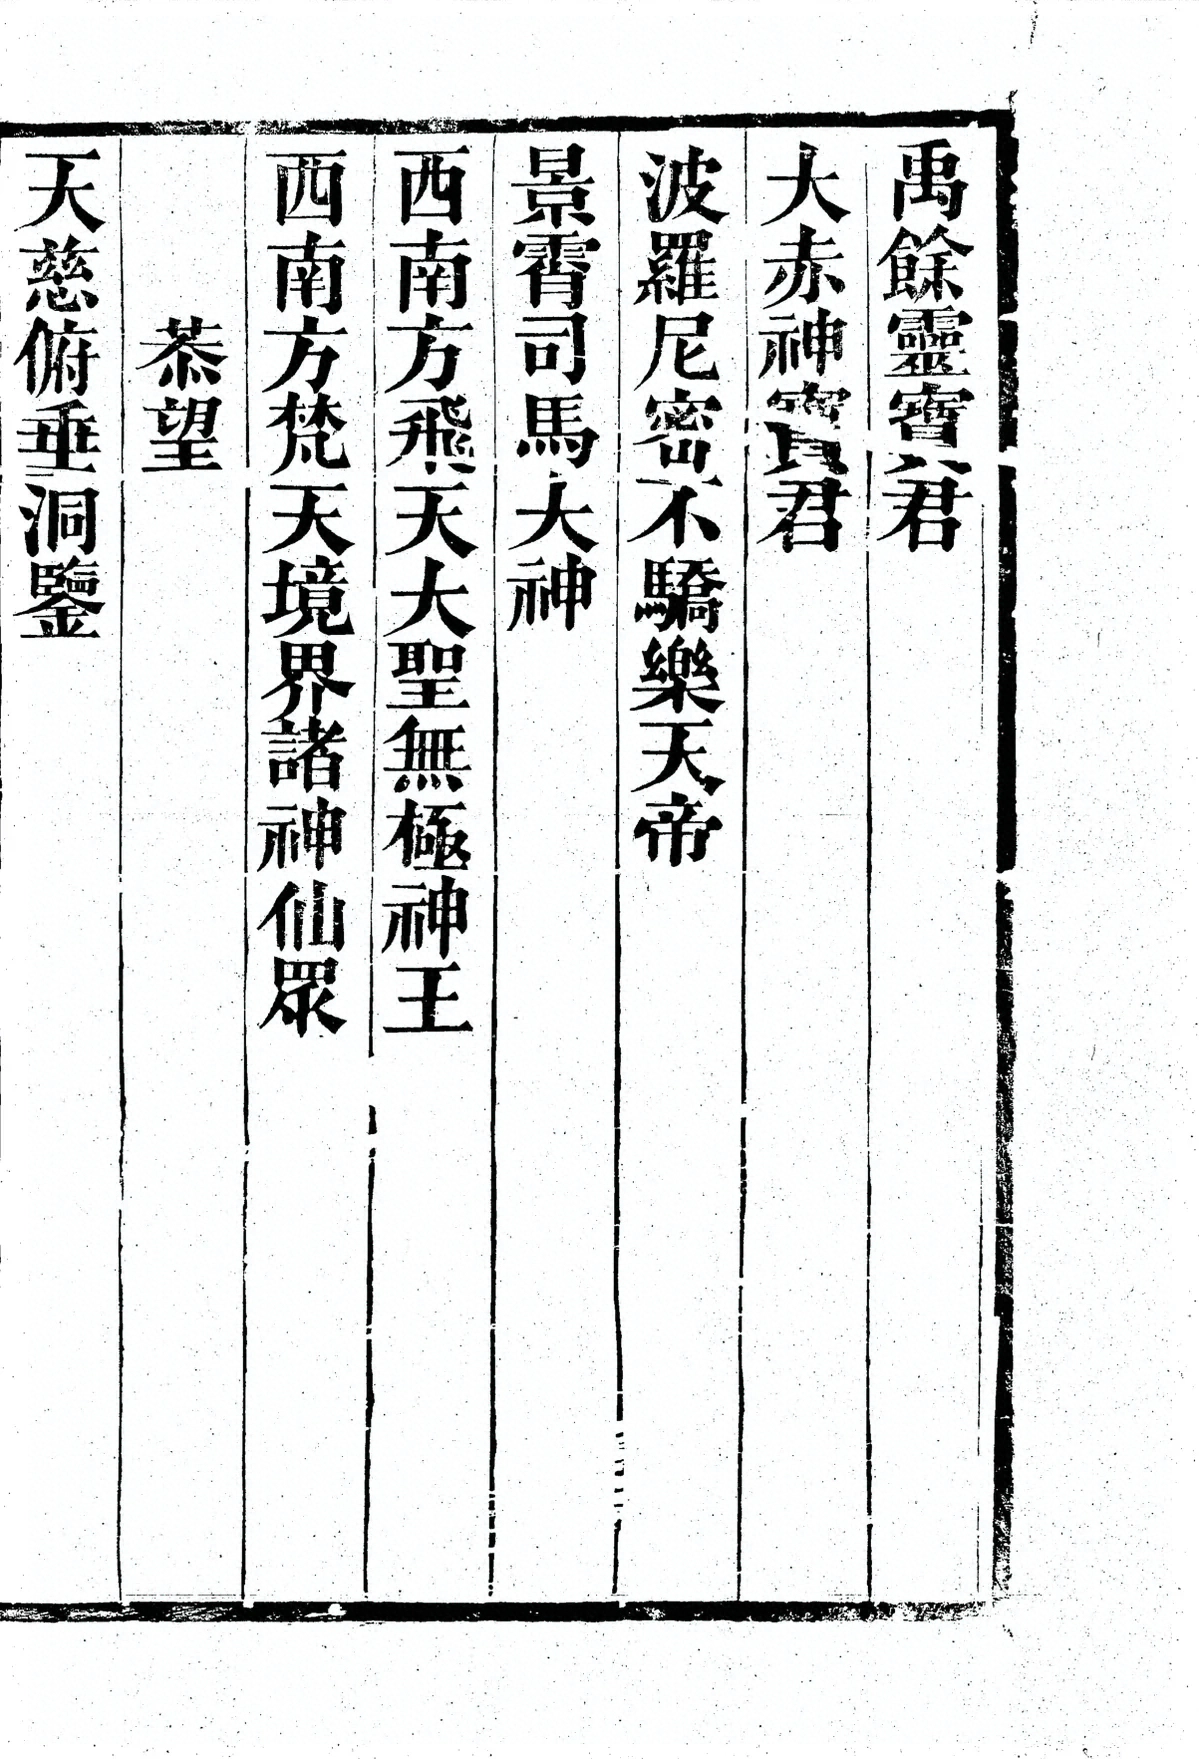 禹餘靈寶君
大赤神寶君
波羅尼密不驕樂天帝
景霄司馬大神
西南方飛天大聖無極神王
西南方梵天境界諸神仙眾
恭望
天慈俯垂洞鑒